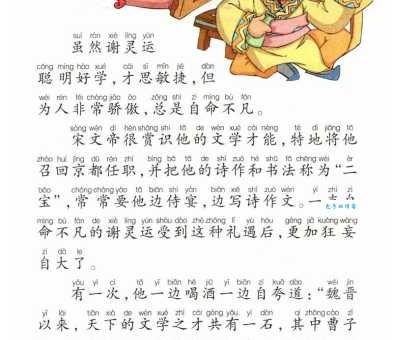 suī rán xiè líng yùn
虽然谢灵运
cōng míng hào xué cái sī mǐn jié dàn
聪明好学，才思敏捷，但
wéi rén fēi cháng jiāo ào zǒng shì zì mìng bù fán
为人非常骄傲，总是自命不凡。
sòng wén dì hěn shǎng shí tā de wén xué cái néng tè dì jiāng tā
宋文帝很赏识他的文学才能，特地将他
zhào huí jīng dū rèn zhí bìng bǎ tā de shī zuò hé shū fǎ chēng wéi èr
召回京都任职，并把他的诗作和书法称为“二
bǎo cháng cháng yào tā biān shì yàn biān xiě shī zuò wén yì zhí zì
宝”，常常要他边侍宴，边写诗作文。一
mìng bù fán de xiè líng yùn shòu dào zhè zhǒng lǐ yù hòu gèng jiā kuáng wàng
命不凡的谢灵运受到这种礼遇后，更加狂妄
zì dà le
自大了。
yǒu yí cì tā yì biān hē jiǔ yì biān zì kuā dào wèi jìn
有一次，他一边喝酒一边自夸道：“魏晋
yǐ lái tiān xià de wén xué zhī cái gòng yǒu yí dàn qí zhōng cáo zǐ
以来，天下的文学之才共有一石，其中曹子